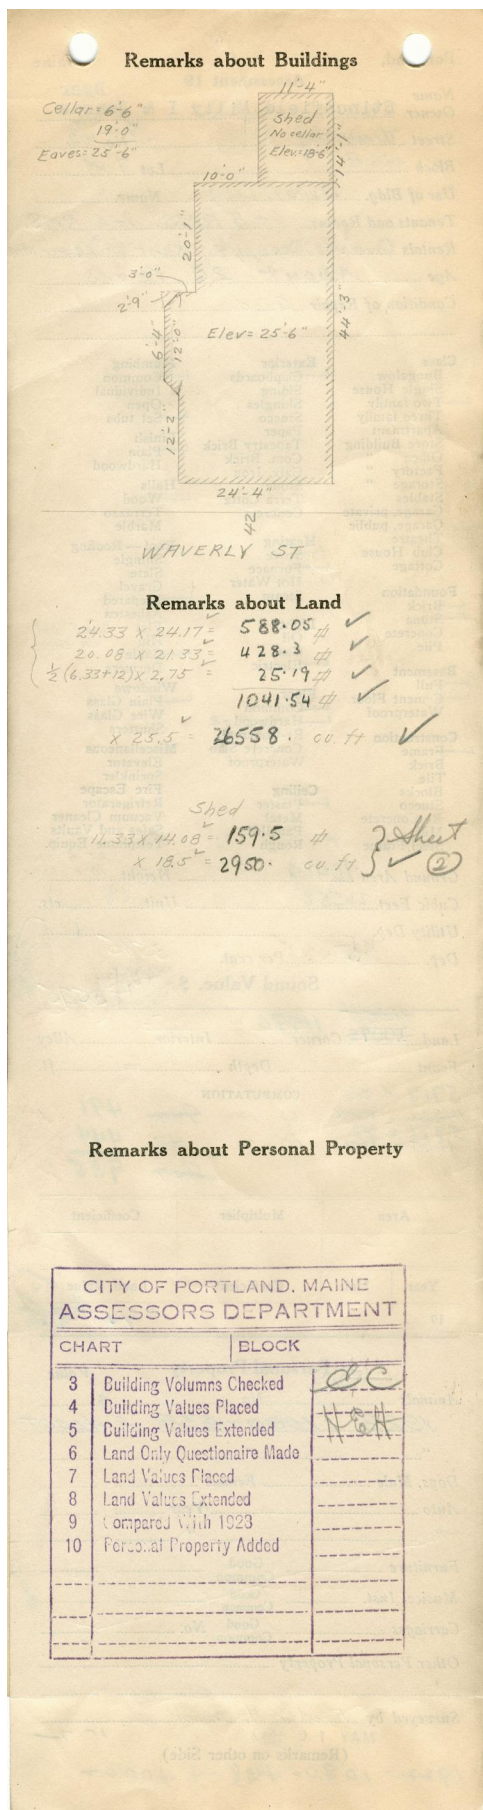 Remarks about Buildings
Cellar=6'-6"
19-0"
Eaves=25'-6"
11'-4"
Shed
No cellar
Elev=18'-6"
14'-1"
10'-0"
20'-1"
3'-0"
2'-9"
6'-4"
12'-0"
Elev=25'-6"
44'-3"
12'-2"
24'-4"
42
WAVERLY ST
Remarks about Land
24.33 X 24.17 = 588.05 ф ✓
20.08 X 21.33 = 428.3 ф ✓
½(6.33+12)X 2.75 = 25.19 ф ✓
1041.54 ф ✓
X 25.5 = 26558. cu. ft ✓
Shed
11.33 X 14.08 = 159.5 ф
X 18.5 = 2950. cu. ft. } ✓ ②
Remarks about Personal Property
CITY OF PORTLAND, MAINE
ASSESSORS DEPARTMENT
CHART BLOCK
3 Building Volumns Checked
4 Building Values Placed
5 Building Values Extended HEH
6 Land Only Questionaire Made
7 Land Values Placed
8 Land Values Extended
9 Compared With 1923
10 Personal Property Added
(Remarks on other Side)